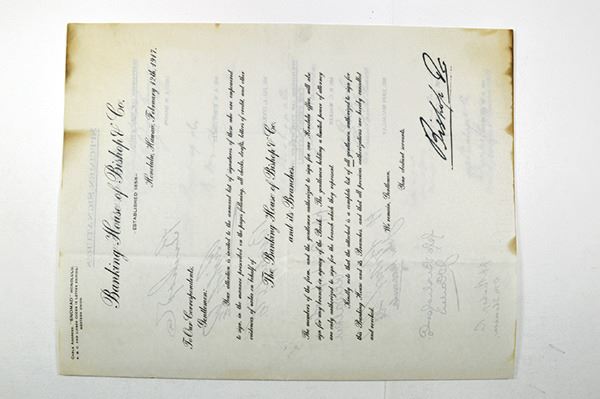 CABLE ADDRESS "SNOMAD" HONOLULU
A. B. C. AND LIEBER CODES
WESTERN UNION
Banking House of Bishop & Co.
ESTABLISHED 1858
Honolulu, Hawaii, February 12th, 1917.
To Our Correspondents,
Gentlemen:
Your attention is invited to the annexed list of signatures of those who are empowered
to sign, in the manner prescribed on the pages following, all checks, drafts, letters of credit, and other
evidences of order in behalf of
The Banking House of Bishop & Co.
and its Branches.
The members of the firm, and the gentlemen authorized to sign for our Honolulu office, will also
sign for any branch or agency of the Bank. The gentlemen holding a limited power of attorney
are only authorized to sign for the branch which they represent.
Kindly note that the attached is a complete list of all gentlemen authorized to sign for
this Banking House and its Branches, and that all previous authorizations are hereby cancelled
and revoked.
We remain, Gentlemen,
Your obedient servants,
Bishop & Co